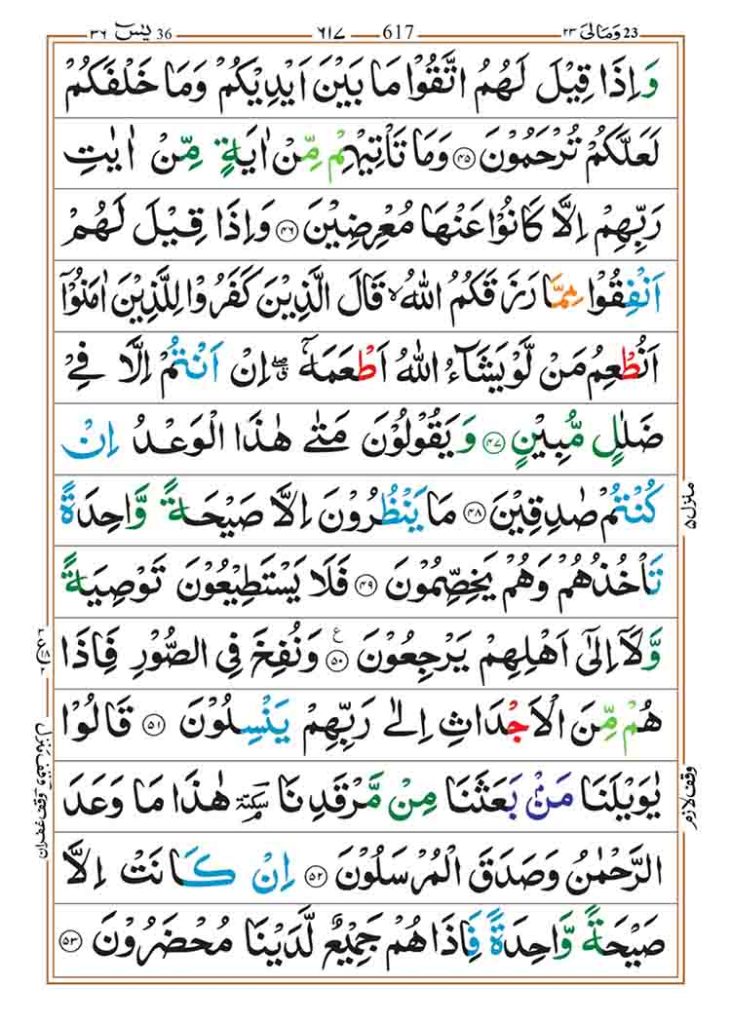 36 یٰسٓ ٣٦ ٦١٧ 617 23 وَمَالِیَ ٢٣
وَاِذَا قِيْلَ لَهُمُ اتَّقُوْا مَا بَيْنَ اَيْدِيْكُمْ وَمَا خَلْفَكُمْ
لَعَلَّكُمْ تُرْحَمُوْنَ ۝۴۵ وَمَا تَاْتِيْهِمْ مِّنْ اٰيَةٍ مِّنْ اٰيٰتِ
رَبِّهِمْ اِلَّا كَانُوْا عَنْهَا مُعْرِضِيْنَ ۝۴۶ وَاِذَا قِيْلَ لَهُمْ
اَنْفِقُوْا مِمَّا رَزَقَكُمُ اللّٰهُ ۙ قَالَ الَّذِيْنَ كَفَرُوْا لِلَّذِيْنَ اٰمَنُوْۤا
اَنُطْعِمُ مَنْ لَّوْ يَشَآءُ اللّٰهُ اَطْعَمَهٗۤ ۖۗ اِنْ اَنْتُمْ اِلَّا فِيْ
ضَلٰلٍ مُّبِيْنٍ ۝۴۷ وَيَقُوْلُوْنَ مَتٰى هٰذَا الْوَعْدُ اِنْ
كُنْتُمْ صٰدِقِيْنَ ۝۴۸ مَا يَنْظُرُوْنَ اِلَّا صَيْحَةً وَّاحِدَةً
تَاْخُذُهُمْ وَهُمْ يَخِصِّمُوْنَ ۝۴۹ فَلَا يَسْتَطِيْعُوْنَ تَوْصِيَةً
وَّلَاۤ اِلٰٓى اَهْلِهِمْ يَرْجِعُوْنَ ۝۵۰ ع وَنُفِخَ فِي الصُّوْرِ فَاِذَا
هُمْ مِّنَ الْاَجْدَاثِ اِلٰى رَبِّهِمْ يَنْسِلُوْنَ ۝۵۱ قَالُوْا
يٰوَيْلَنَا مَنْۢ بَعَثَنَا مِنْ مَّرْقَدِنَا ۜ سكتة هٰذَا مَا وَعَدَ
الرَّحْمٰنُ وَصَدَقَ الْمُرْسَلُوْنَ ۝۵۲ اِنْ كَانَتْ اِلَّا
صَيْحَةً وَّاحِدَةً فَاِذَا هُمْ جَمِيْعٌ لَّدَيْنَا مُحْضَرُوْنَ ۝۵۳
منزل ۵
وقف لازم